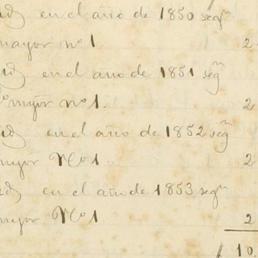 en el año de 1850 seg.n
mayor nº 1 2
en el año de 1851 seg.n
mayor nº 1. 2
en el año de 1852 seg.n
mayor Nº 1 .. 2
en el año de 1853 seg.n
mayor Nº 1 2
10